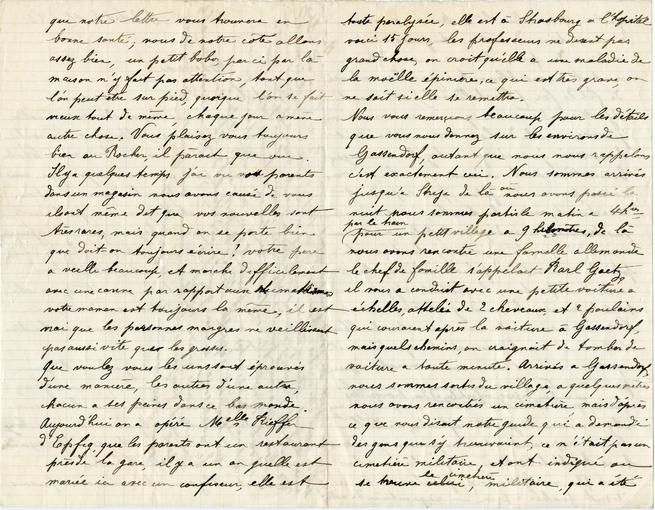 que notre lettre vous trouvera en
bonne santé, nous de notre côté allons
assez bien, un petit bobo par ci par là
maison n'y fait pas attention, tant que
l'on peut être sur pied, quoique l'on se fait
vieux tout de même, chaque jour amène
autre chose. Vous plaisez vous toujours
bien au Rocher, il parait que oui.
Il y a quelques temps j'ai vu vos parents
dans un magasin nous avons causé de vous
ils ont même dit que vos nouvelles sont
très rares, mais quand on se porte bien
que doit-on toujours écrire! votre père
a vieilli beaucoup, et marche difficilement
avec une canne par rapport aux rhumatismes
votre maman est toujours la même, il est
vrai que les personnes maigres ne vieillissent
pas aussi vite que les grosses.
Que voulez vous les uns sont éprouvés
d'une manière, les autres d'une autre,
chacun a ses peines dans ce bas monde.
Aujourd'hui on a opéré Melle Kieffer
d'Epfig que les parents ont un restaurant
près de la gare, il y a un an qu'elle est
mariée ici avec un confiseur, elle est
toute paralysée, elle est à Strasbourg à l'hopital
voici 15 jours, les professeurs ne disent pas
grand chose, on croit qu'elle a une maladie de
la moëlle épinière, ce qui est très grave, on
ne sait si elle se remettra.
Nous vous remerçions beaucoup pour les détails
que vous nous donnez sur les environs de
Gassendorf, autant que nous nous rappelons
c'est exactement ceci. Nous sommes arrivés
jusqu'à Stryje de là où nous avons passé la
nuit nous sommes partis le matin à 4 hres
par le train
pour un petit village à 9 kilomètres, de là
nous avons rencontré une famille allemande
le chef de famille s'appelait Karl Goetz
il nous a conduit avec une petite voiture à
échelles, attelée de 2 chevaux, et 2 poulains
qui couraient après la voiture à Gassendorf,
mais quels chemins, on craignait de tomber de
voiture à toute minute. Arrivés à Gassendorf,
nous sommes sortis du village à quelques mètres
nous avons rencontrés un cimetière, mais d'après
ce que nous disait notre guide qui a demandé
des gens qui s'y trouvaient, ce n'était pas un
cimetière militaire, et ont indiqué où
se trouve le cimetière militaire, qui a été